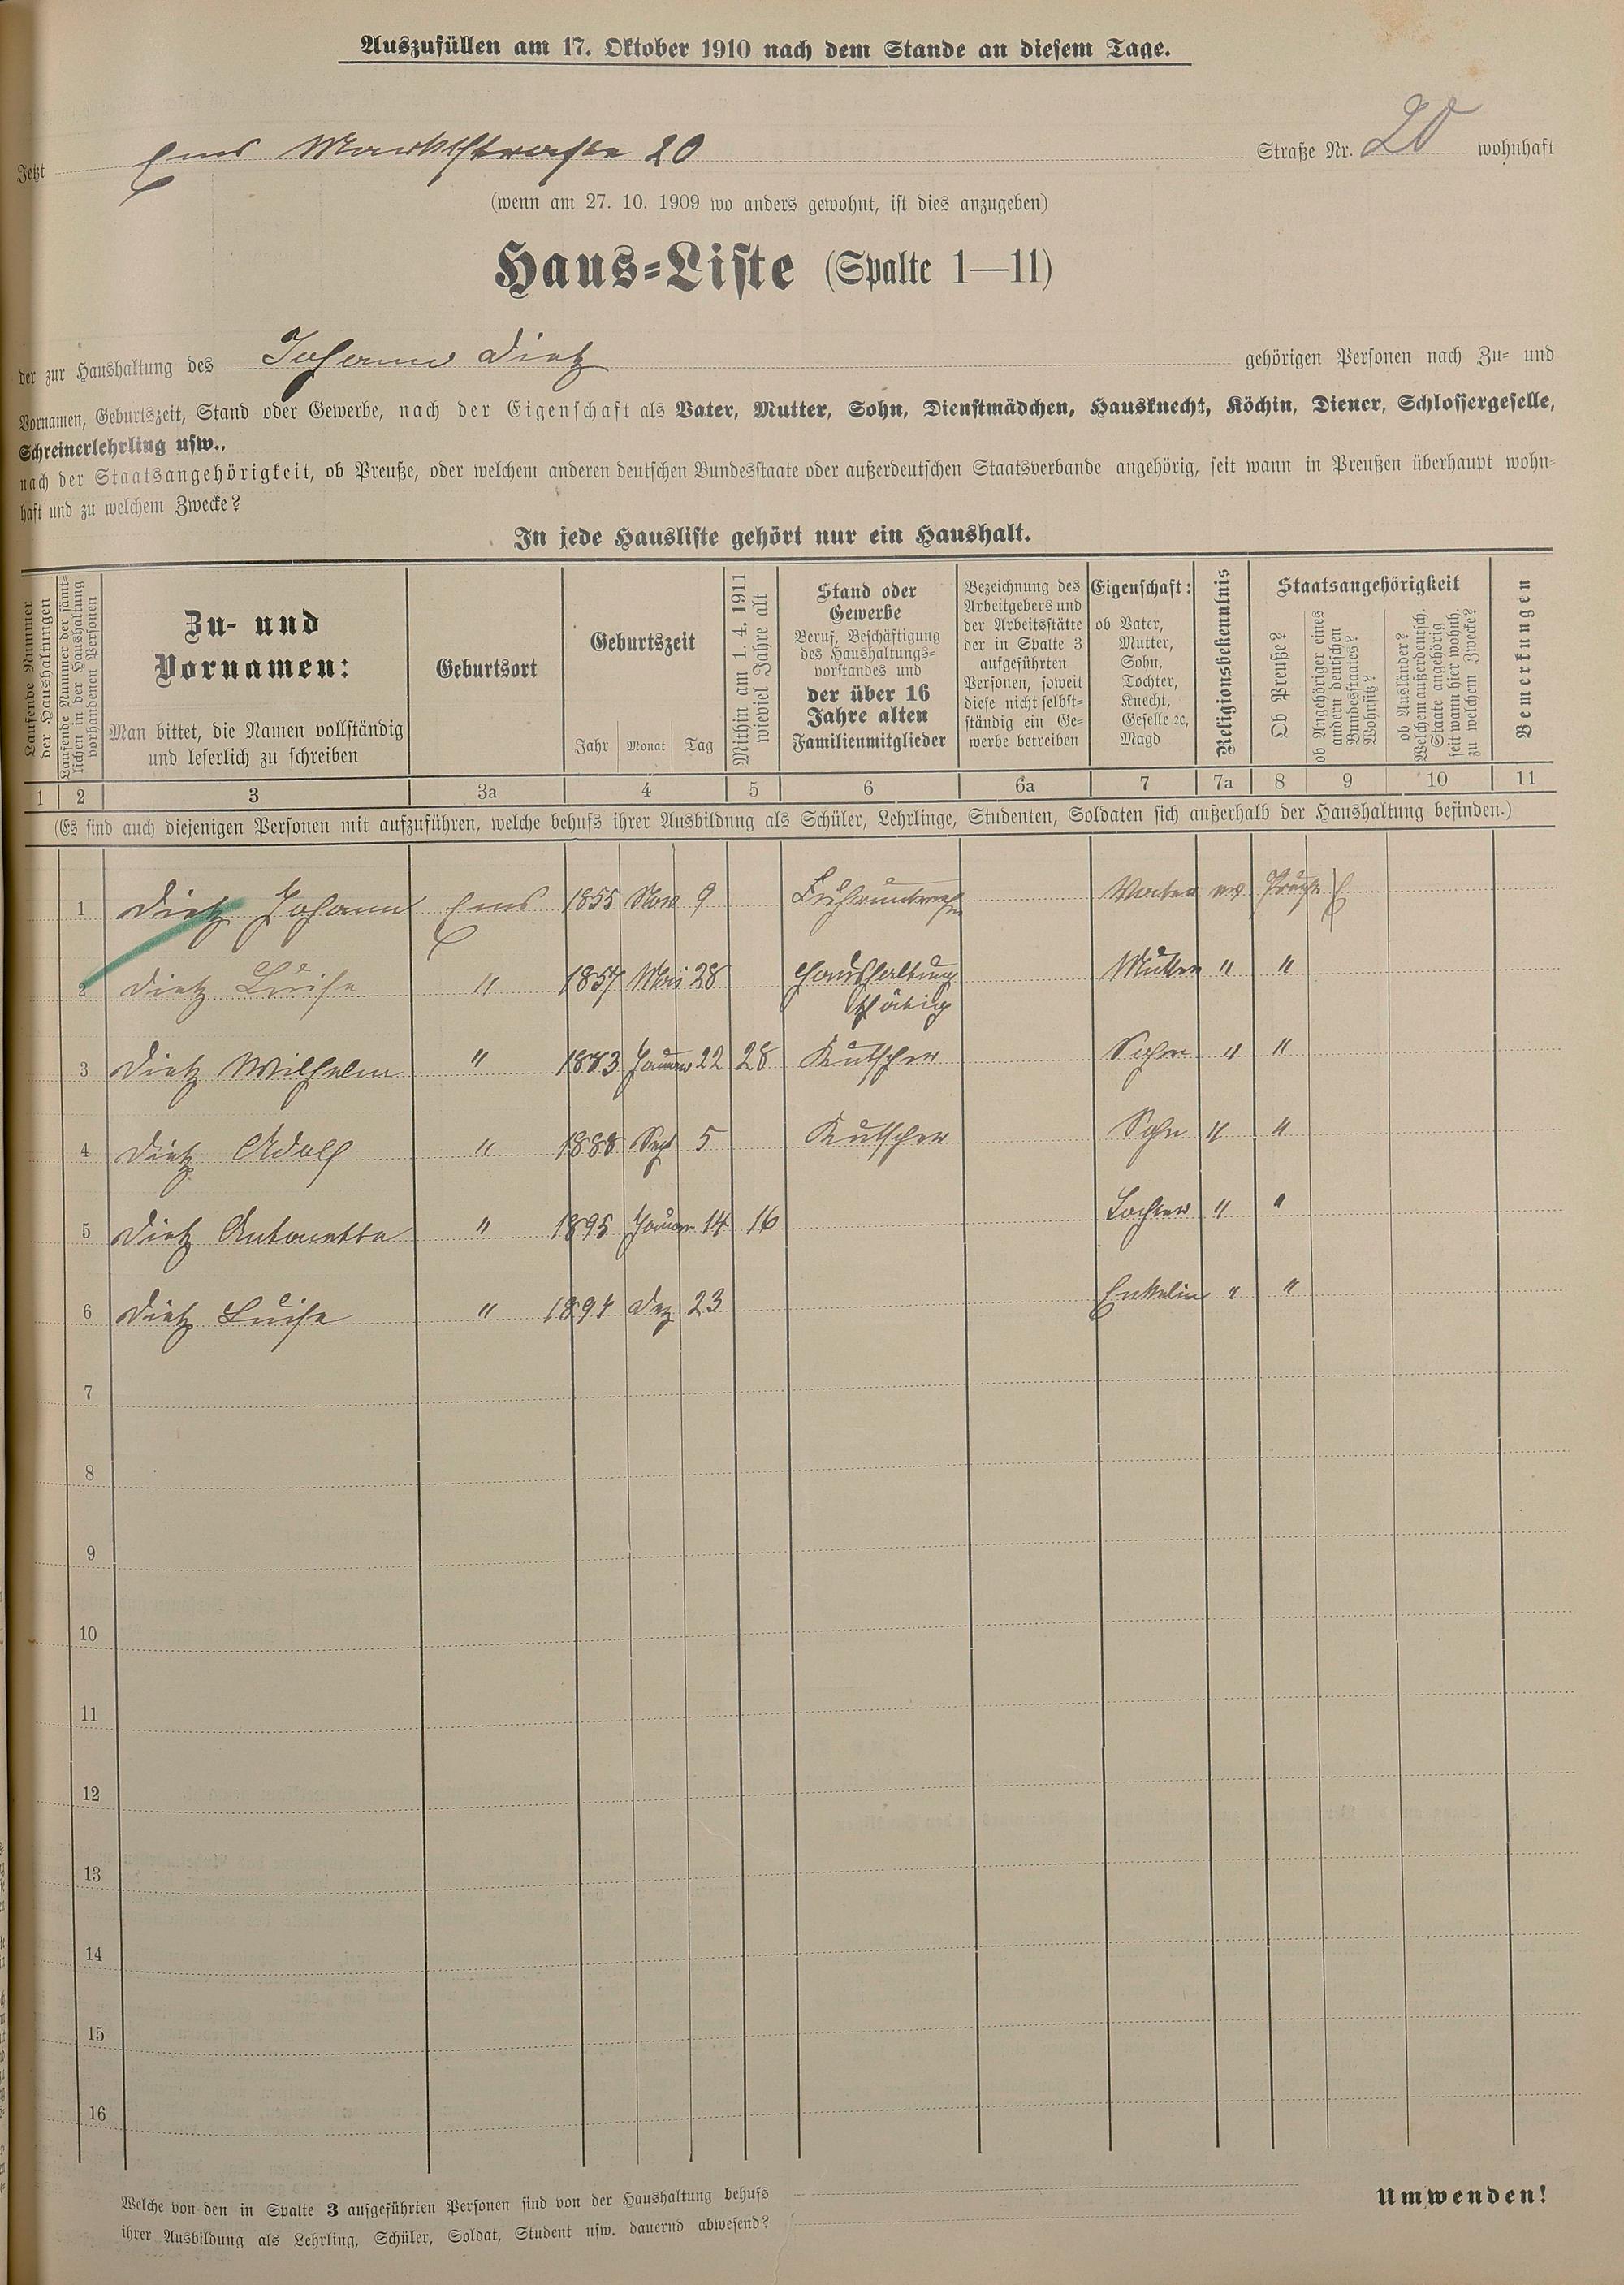 Auszufüllen am 17. Oktober 1910 nach dem Stande an diesem Tage.
Jetzt Ems Marktstraße 20 Straße Nr. 20 wohnhaft
(wenn am 27. 10. 1909 wo anders gewohnt, ist dies anzugeben)
Haus-Liste (Spalte 1—11)
der zur Haushaltung des Johann Dietz gehörigen Personen nach Zu- und
Vornamen, Geburtszeit, Stand oder Gewerbe, nach der Eigenschaft als Vater, Mutter, Sohn, Dienstmädchen, Hausknecht, Köchin, Diener, Schlossergeselle,
Schreinerlehrling usw.,
nach der Staatsangehörigkeit, ob Preuße, oder welchem anderen deutschen Bundesstaate oder außerdeutschen Staatsverbande angehörig, seit wann in Preußen überhaupt wohn-
haft und zu welchem Zwecke?
In jede Hausliste gehört nur ein Haushalt.
Laufende Nummer
der Haushaltungen
Laufende Nummer der sämt-
lichen in der Haushaltung
vorhandenen Personen
Zu- und
Vornamen:
Man bittet, die Namen vollständig
und leserlich zu schreiben
Geburtsort
Geburtszeit
Jahr Monat Tag
Mithin am 1. 4. 1911
wieviel Jahre alt
Stand oder
Gewerbe
Beruf, Beschäftigung
des Haushaltungs-
vorstandes und
der über 16
Jahre alten
Familienmitglieder
Bezeichnung des
Arbeitgebers und
der Arbeitsstätte
der in Spalte 3
aufgeführten
Personen, soweit
diese nicht selbst-
ständig ein Ge-
werbe betreiben
Eigenschaft:
ob Vater,
Mutter,
Sohn,
Tochter,
Knecht,
Geselle ꝛc,
Magd
Religionsbekenntnis
Staatsangehörigkeit
Ob Preuße?
ob Angehöriger eines
andern deutschen
Bundesstaates?
Wohnsitz?
ob Ausländer?
Welchem außerdeutsch.
Staate angehörig
seit wann hier wohnh.
zu welchem Zwecke?
Bemerkungen
1 2 3 3a 4 5 6 6a 7 7a 8 9 10 11
(Es sind auch diejenigen Personen mit aufzuführen, welche behufs ihrer Ausbildung als Schüler, Lehrlinge, Studenten, Soldaten sich außerhalb der Haushaltung befinden.)
1 Dietz Johann Ems 1855 Nov 9 Vater ev Preuße
2 Dietz Luise " 1857 Mai 28 Haushaltung Mutter " "
thätig
3 Dietz Wilhelm " 1883 Januar 22 28 Kutscher Sohn " "
4 Dietz Adolf " 1888 Sept 5 Kutscher Sohn " "
5 Dietz Antonetta " 1895 Januar 14 16 Tochter " "
6 Dietz Luise " 1894 Dez 23 Enkelin " "
7
8
9
10
11
12
13
14
15
16
Welche von den in Spalte 3 aufgeführten Personen sind von der Haushaltung behufs
ihrer Ausbildung als Lehrling, Schüler, Soldat, Student usw. dauernd abwesend?
Umwenden!